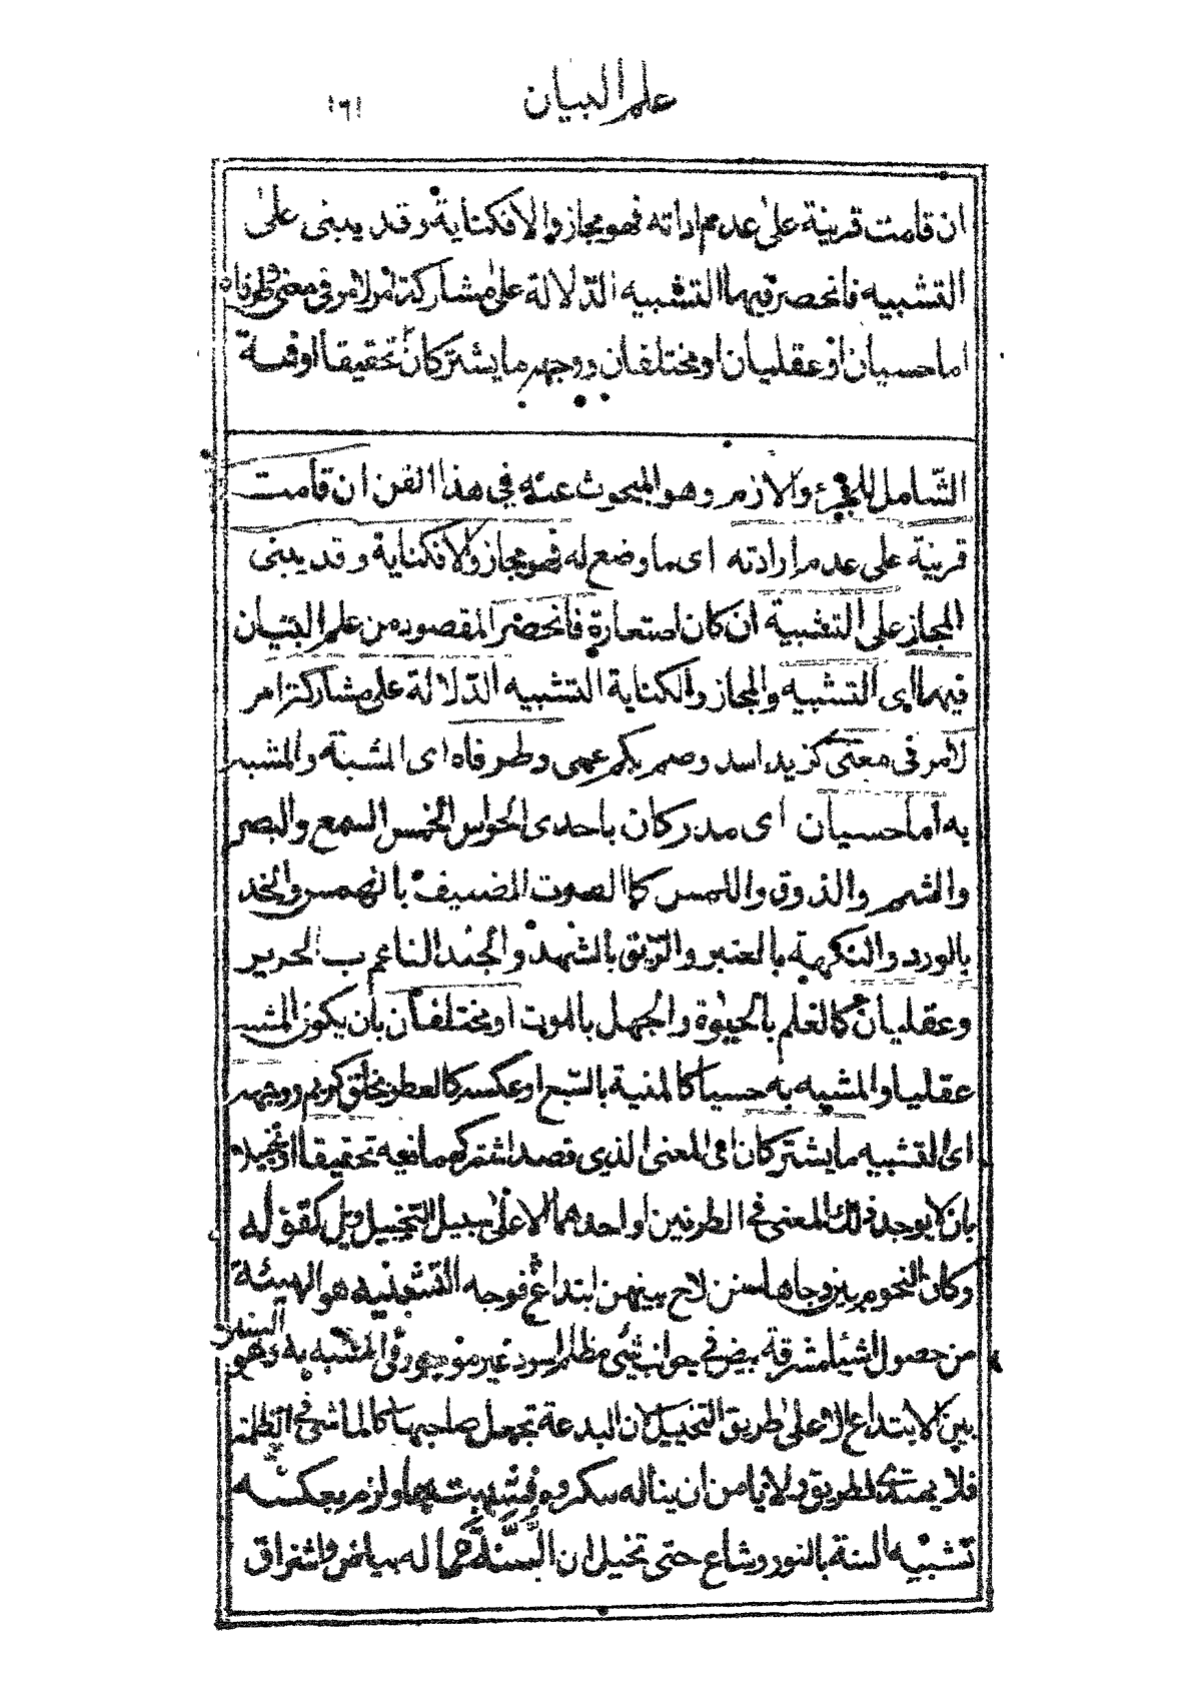 علم البيان
١٦١
ان قامت قرينة على عدم ارادته فهو مجاز والا فكناية وقد يبنى على
التشبيه فانحصر فيهما التشبيه الدلالة على مشاركة امر لامر في معنى وطرفاه
اما حسيان او عقليان او مختلفان ووجهه ما يشتركان تحقيقا او
الشامل للجزء واللازم وهو المبحوث عنه في هذا الفن ان قامت
قرينة على عدم ارادته اى ما وضع له فهو مجاز والا فكناية وقد يبنى
المجاز على التشبية ان كان استعارة فانحصر المقصود من علم البيان
فيهما اى التشبيه والمجاز والكناية التشبيه الدلالة على مشاركة امر
لامر في معنى كزيد اسد وصم بكم عمى وطرفاه اى المشبة والمشبه
به اما حسيان اى مدركان باحدى الحواس الخمس السمع والبصر
والشم والذوق واللمس كالصوت الضعيف بالهمس والخد
بالورد والنكهة بالعنبر والريق بالشهد والجلد الناعم ب الحرير
وعقليان كالعلم بالحيوة والجهل بالموت او مختلفان بان يكون المشبه
عقليا والمشبه به حسيا كالمنية بالسبع او عكسه كالعطر بخلق كريم ووجهه
اى التشبيه ما يشتركان اى المعنى الذى قصد اشتراكهما فيه تحقيقا او تخييلا
بان لا يوجد ذلك المعنى في الطرفين او احدهما الا على سبيل التخييل كقوله
وكان النجوم بين دجاها سنن لاح بينهن ابتداع فوجه التشبيه هو الهيئة
من حصول اشياء مشرقة بيض في جوانب شئ مظلم اسود غير موجود في المشبه به وهو السنن
بين الابتداع الا على طريق التخييل لان البدعة تجعل صاحبها كالماشى في الظلمة
فلا يهتدى لطريق ولا يامن ان يناله مكروه فشبهت بها ولزم بعكسه
تشبيه السنة بالنور وشاع حتى تخيل ان السنة مما له بياض واشراق